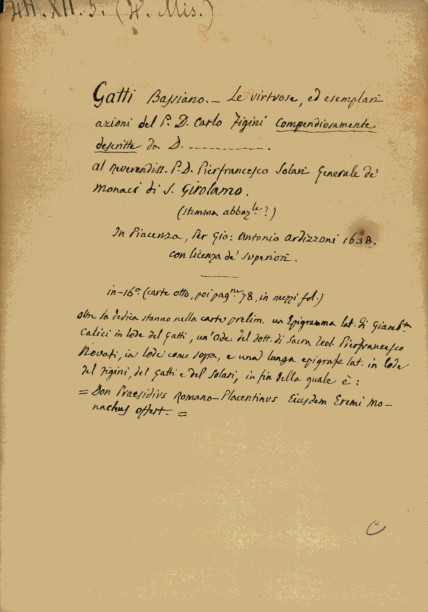 4H. XII. 5. (4. Mis.)
Gatti Bassiano. — Le virtuose, ed esemplari
azioni del P. D. Carlo Figini compendiosamente
descritte da D. —
al reverendiss. P. D. Pierfrancesco Solari Generale de'
monaci di S. Girolamo.
(stemma abbaz.le?)
In Piacenza, Per Gio: Antonio Ardizzoni 1638.
con licenza de' superiori.
in-16° (carte otto, poi pag.ne 78, in mezzi fol.)
oltre la dedica stanno nelle carte prelim. un Epigramma lat. di Giamb.ta
Calici in lode del Gatti, un'Ode del dott. di Sacra Teol. Pierfrancesco
Rovati, in lode come sopra, e una lunga epigrafe lat. in lode
del Figini, del Gatti e del Solari, in fin della quale è:
= Don Praesidius Romano-Placentinus Eiusdem Eremi Mo-
nachus offert. =
C